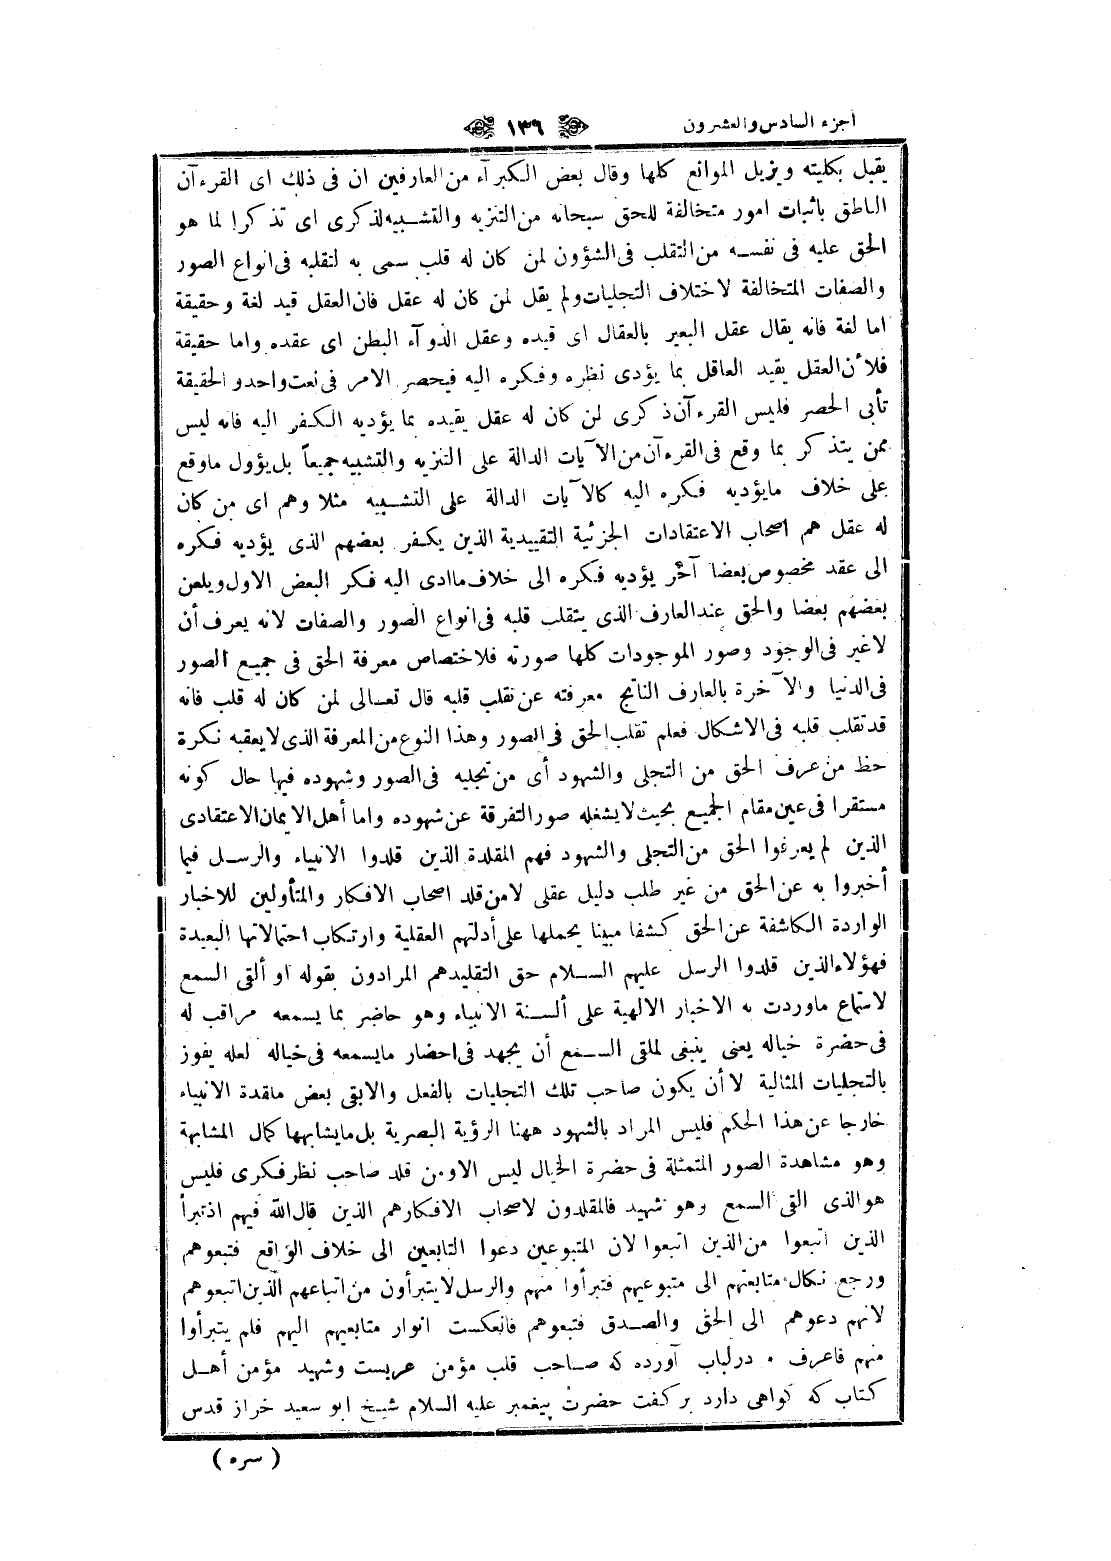 الجزء السادس والعشرون
١٣٦
يقبل بكليته ويزيل الموانع كلها وقال بعض الكبرآء من العارفين ان فى ذلك اى القرءآن
الناطق باثبات امور متخالفة للحق سبحانه من التنزيه والتشبيه لذكرى اى تذكرا لما هو
الحق عليه فى نفسه من التقلب فى الشؤون لمن كان له قلب سمى به لتقلبه فى انواع الصور
والصفات المتخالفة لاختلاف التجليات ولم يقل لمن كان له عقل فان العقل قيد لغة وحقيقة
اما لغة فانه يقال عقل البعير بالعقال اى قيده وعقل الدوآء البطن اى عقده واما حقيقة
فلأن العقل يقيد العاقل بما يؤدى نظره وفكره اليه فيحصر الامر فى نعت واحد والحقيقة
تأبى الحصر فليس القرءآن ذكرى لمن كان له عقل يقيده بما يؤديه الكفر اليه فانه ليس
ممن يتذكر بما وقع فى القرءآن من الآيات الدالة على التنزيه والتشبيه جميعاً بل يؤول ماوقع
على خلاف مايؤديه فكره اليه كالآيات الدالة على التشبيه مثلا وهم اى من كان
له عقل هم اصحاب الاعتقادات الجزئية التقييدية الذين يكفر بعضهم الذى يؤديه فكره
الى عقد مخصوص بعضا آخر يؤديه فكره الى خلاف ماادى اليه فكر البعض الاول ويلعن
بعضهم بعضا والحق عند العارف الذى يتقلب قلبه فى انواع الصور والصفات لانه يعرف أن
لاغير فى الوجود وصور الموجودات كلها صورته فلاختصاص معرفة الحق فى جميع الصور
فى الدنيا والآخرة بالعارف الناتج معرفته عن تقلب قلبه قال تعالى لمن كان له قلب فانه
قد تقلب قلبه فى الاشكال فعلم تقلب الحق فى الصور وهذا النوع من المعرفة الذى لايعقبه نكرة
حظ من عرف الحق من التجلى والشهود أى من تجليه فى الصور وشهوده فيها حال كونه
مستقرا فى عين مقام الجميع بحيث لايشغله صور التفرقة عن شهوده واما أهل الايمان الاعتقادى
الذين لم يعرفوا الحق من التجلى والشهود فهم المقلدة الذين قلدوا الانبياء والرسل فيما
أخبروا به عن الحق من غير طلب دليل عقلى لامن قلد اصحاب الافكار والمتأولين للاخبار
الواردة الكاشفة عن الحق كشفا مبينا بحملها على أدلتهم العقلية وارتكاب احتمالاتها البعيدة
فهؤلاء الذين قلدوا الرسل عليهم السلام حق التقليدهم المرادون بقوله او ألقى السمع
لاستماع ماوردت به الاخبار الالهية على ألسنة الانبياء وهو حاضر بما يسمعه مراقب له
فى حضرة خياله يعنى ينبغى لملقى السمع أن يجهد فى احضار مايسمعه فى خياله لعله يفوز
بالتجليات المثالية لا أن يكون صاحب تلك التجليات بالفعل والابقى بعض مقلدة الانبياء
خارجا عن هذا الحكم فليس المراد بالشهود ههنا الرؤية البصرية بل مايشابهها كمال المشابهة
وهو مشاهدة الصور المتمثلة فى حضرة الخيال ليس الاومن قلد صاحب نظر فكرى فليس
هو الذى القى السمع وهو شهيد فالمقلدون لاصحاب الافكارهم الذين قال الله فيهم اذتبرأ
الذين اتبعوا من الذين اتبعوا لان المتبوعين دعوا التابعين الى خلاف الواقع فتبعوهم
ورجع نكال متابعتهم الى متبوعيهم فتبرأوا منهم والرسل لايتبرأون من اتباعهم الّذين اتبعوهم
لانهم دعوهم الى الحق والصدق فتبعوهم فانعكست انوار متابعيهم اليهم فلم يتبرأوا
منهم فاعرف • درلباب آورده كه صاحب قلب مؤمن عربست وشهيد مؤمن أهل
كتاب كه كواهى دارد بر كفت حضرت پيغمبر عليه السلام شيخ ابو سعيد خراز قدس
( سره )